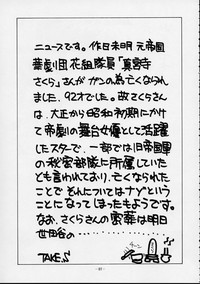 ニュースです。作日未明 元帝国
華劇団花組隊員「真宮寺
さくら」さんがガンの為亡くなられ
ました。92才でした。故さくらさん
は、大正から昭和初期にかけ
て帝劇の舞台女優として活躍
したスターで、一部では旧帝国軍
の秘密部隊に所属していた
とも言われており、亡くなられた
ことでそれについてはナゾということ
になってしまったもようです。
なお、さくらさんの密葬は明日
世田谷の……
TAKE.S